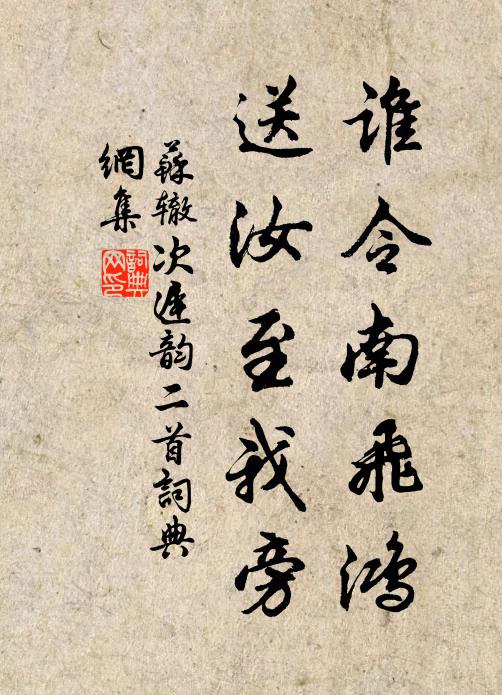 誰令南飛鴻
送汝至我旁
蘇辙次遲韵二首詞典
網集
詞典
网印